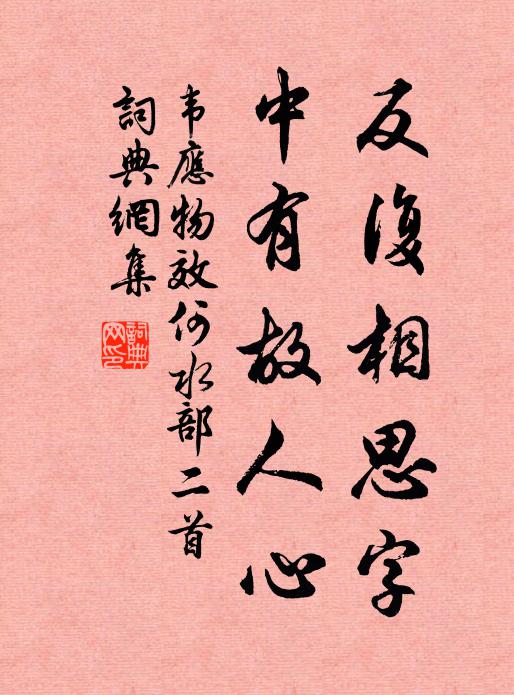 反復相思字
中有故人心
韦應物效何水部二首
詞典網集
詞典網印